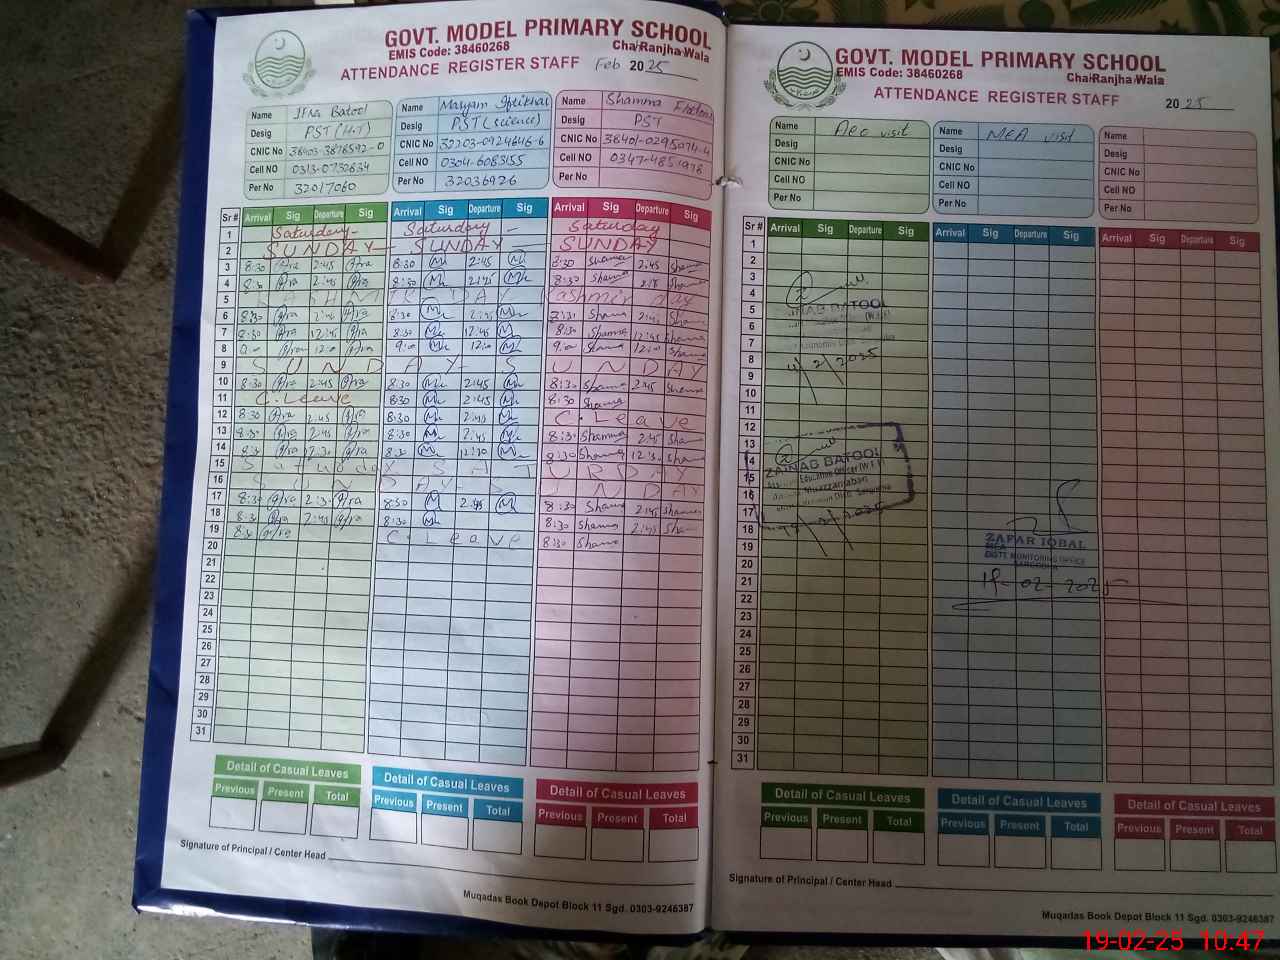 GOVT. MODEL PRIMARY SCHOOL
EMIS Code: 38460268
Cha Ranjha Wala
ATTENDANCE REGISTER STAFF Feb 2025
Name Ifra Batool
Desig PST (H.T)
CNIC No 38403-3878592-0
Cell NO 0313-0732834
Per No 32017060
Name Maryam Iftikhar
Desig PST (science)
CNIC No 32203-0924646-6
Cell NO 0304-6083155
Per No 32036926
Name Shamma
Desig PST
CNIC No 38401-0295074-4
Cell NO 0347-4851978
Per No
Sr # Arrival Sig Departure Sig Arrival Sig Departure Sig Arrival Sig Departure Sig
1 Saturday- Saturday - Saturday
2 SUNDAY- SUNDAY SUNDAY
3 8:30 Ifra 2:45 Ifra 8:30 M 2:45 M 8:30 Shama 2:45 Shama
4 8:30 Ifra 2:45 Ifra 8:30 M 2:45 M 8:30 Shama 2:45 Shama
5 KASHMIR DAY Kashmir day
6 8:30 Ifra 2:45 Ifra 8:30 M 2:45 M 8:31 Sham 2:45 Sham
7 8:30 Ifra 12:45 Ifra 8:30 M 12:45 M 8:30 Shamma 12:45 Shama
8 9:00 Ifra 12:00 Ifra 9:00 M 12:00 M 9:00 Shama 12:00 Shama
9 SUNDAY- SUNDAY
10 8:30 Ifra 2:45 Ifra 8:30 M 2:45 M 8:30 Shama 2:45 Shama
11 C.Leave 8:30 M 2:45 M 8:30 Shama
12 8:30 Ifra 2:45 Ifra 8:30 M 2:45 M C.Leave
13 8:30 Ifra 2:45 Ifra 8:30 M 2:45 M 8:30 Shamma 2:45 Sham
14 8:30 Ifra 12:30 Ifra 8:30 M 12:30 M 8:30 Shama 12:30 Sham
15 Saturday SATURDAY
16 SUNDAY- SUNDAY
17 8:30 Ifra 2:30 Ifra 8:30 M 2:45 M 8:30 Shama 2:45 Shama
18 8:30 Ifra 2:45 Ifra 8:30 M 8:30 Shama 2:45 Sha
19 8:30 Ifra C.Leave 8:30 Shama
20
21
22
23
24
25
26
27
28
29
30
31
Detail of Casual Leaves Detail of Casual Leaves Detail of Casual Leaves
Previous Present Total Previous Present Total Previous Present Total
Signature of Principal / Center Head
Muqadas Book Depot Block 11 Sgd. 0303-9246387
GOVT. MODEL PRIMARY SCHOOL
EMIS Code: 38460268
Cha Ranjha Wala
ATTENDANCE REGISTER STAFF
2025
Name Aeo visit
Desig
CNIC No
Cell NO
Per No
Name MEA visit
Desig
CNIC No
Cell NO
Per No
Name
Desig
CNIC No
Cell NO
Per No
Sr # Arrival Sig Departure Sig Arrival Sig Departure Sig Arrival Sig Departure Sig
1
2
3
4
5
6
7
8
9
10
11
12
13
14
15
16
17
18
19
20
21
22
23
24
25
26
27
28
29
30
31
ZAINAB BATOOL
4/2/2025
ZAINAB BATOOL
Education Officer (W.E.F)
ZAFAR IQBAL
MEA
DISTT. MONITORING OFFICE
SARGODHA
19-02-2025
Detail of Casual Leaves Detail of Casual Leaves Detail of Casual Leaves
Previous Present Total Previous Present Total Previous Present Total
Signature of Principal / Center Head
Muqadas Book Depot Block 11 Sgd. 0303-9246387
19-02-25 10:47